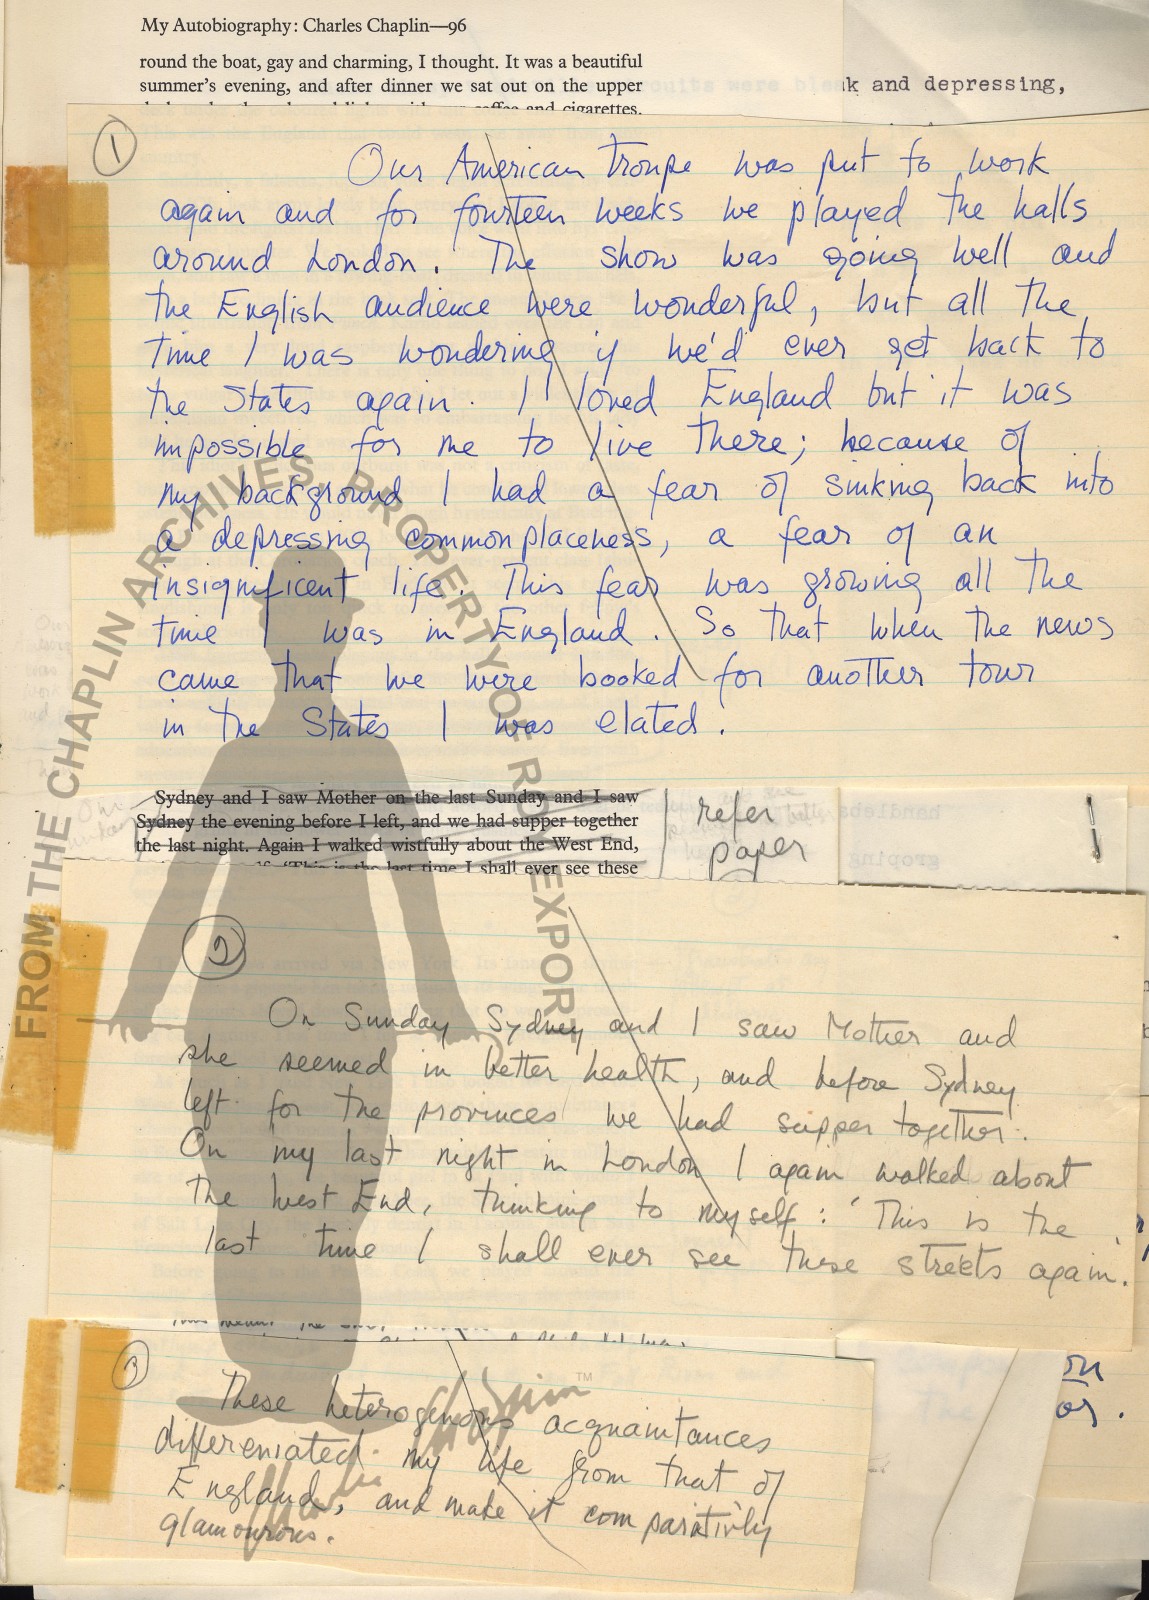 My Autobiography: Charles Chaplin—96
round the boat, gay and charming, I thought. It was a beautiful
summer's evening, and after dinner we sat out on the upper
and cigarettes.
k and depressing,
1
Our American troupe was put to work
again and for fourteen weeks we played the halls
around London. The show was going well and
the English audience were wonderful, but all the
time I was wondering if we'd ever get back to
the States again. I loved England but it was
impossible for me to live there; because of
my background I had a fear of sinking back into
a depressing commonplaceness, a fear of an
insignificent life. This fear was growing all the
time I was in England. So that when the news
came that we were booked for another tour
in the States I was elated.
Sydney and I saw Mother on the last Sunday and I saw
Sydney the evening before I left, and we had supper together
the last night. Again I walked wistfully about the West End,
(This is the last time I shall ever see these
refer
paper
handlebs
groping
2
On Sunday Sydney and I saw Mother and
she seemed in better health, and before Sydney
left for the provinces we had supper together.
On my last night in London I again walked about
the West End, thinking to myself: 'This is the
last time I shall ever see these streets again.'
3
These heterogenous acquaintances
differeniated my life from that of
England, and make it comparitivly
glamourous.
on
or.
FROM THE CHAPLIN ARCHIVES, PROPERTY OF ROY EXPORT
Charlie Chaplin™